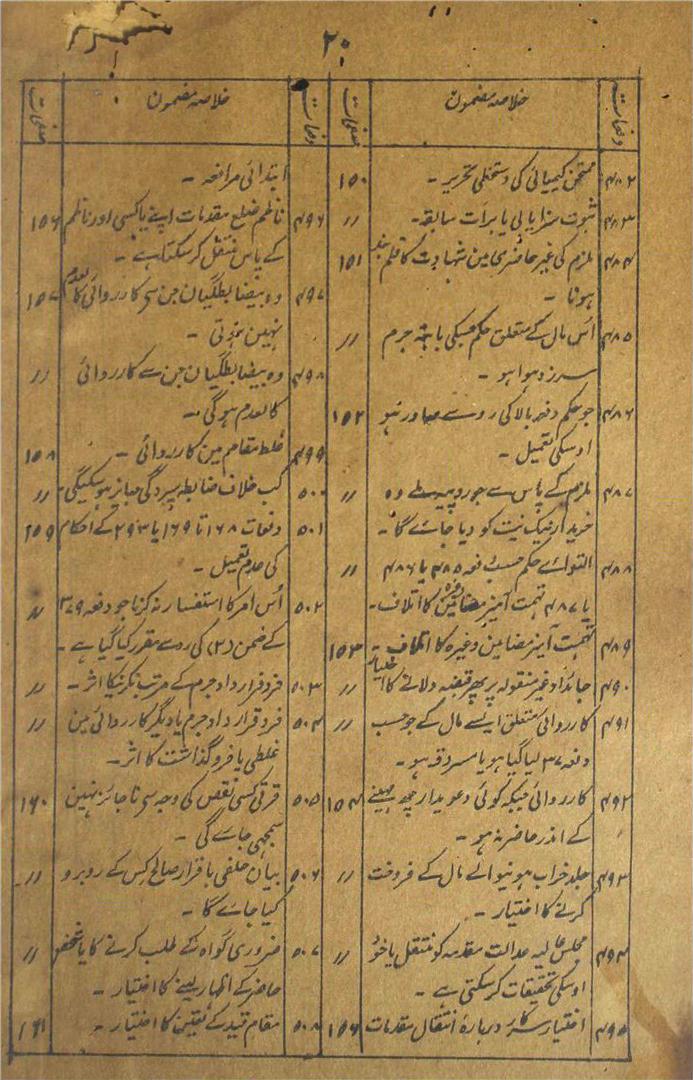 ۲۰
دفعات خلاصہ مضمون صفحات
۴۸۲ ممتحن کیمیائی کی دستخطی تحریر ۔ ۱۵۰
۴۸۳ ثبوت سزایابی یا برأت سابقہ ۔ //
۴۸۴ ملزم کی غیر حاضری مین شہادت کا قلم بند ۱۵۱
ہونا ۔
۴۸۵ اُس مال کے متعلق حکم جسکی بابتہ جرم //
سرزد ہوا ہو ۔
۴۸۶ جو حکم دفعہ بالا کی رو سے صادر ہو ۱۵۲
اوسکی تعمیل ۔
۴۸۷ ملزم کے پاس سے جو روپیہ ملے وہ //
خریدار نیک نیت کو دیا جائے گا ۔
۴۸۸ التوائے حکم حسب دفعہ ۴۸۵ یا ۴۸۶ //
یا ۴۸۷ تہمت آمیز مضامین وغیرہ کا اتلاف ۔
۴۸۹ تہمت آمیز مضامین وغیرہ کا اتلاف ۔ ۱۵۳
۴۹۰ جائداد غیر منقولہ پر پھر قبضہ دلانے کا اختیار //
۴۹۱ کارروائی متعلق ایسے مال کے جو حسب //
دفعہ ۳۷ لیا گیا ہو یا مسروقہ ہو ۔
۴۹۲ کارروائی جبکہ کوئی دعویدار چھ مہینے ۱۵۴
کے اندر حاضر نہ ہو ۔
۴۹۳ جلد خراب ہونیوالے مال کے فروخت //
کرنے کا اختیار ۔
۴۹۴ مجلس عالیہ عدالت مقدمہ کو منتقل یا خود //
اوسکی تحقیقات کرسکتی ہے ۔
۴۹۵ اختیار سرکار دربارۂ انتقال مقدمات ۱۵۶
دفعات خلاصہ مضمون صفحات
ابتدائی مرافعہ ۔
۴۹۶ ناظم ضلع مقدمات اپنے یا کسی اور ناظم ۱۵۶
کے پاس منتقل کرسکتا ہے ۔
۴۹۷ وہ بیضابطگیان جن سے کارروائی کالعدم ۱۵۷
نہین ہوتی ۔
۴۹۸ وہ بیضابطگیان جن سے کارروائی //
کالعدم ہوگی ۔
۴۹۹ غلط مقام مین کارروائی ۔ ۱۵۸
۵۰۰ کب خلاف ضابطہ سپردگی جائز ہوسکیگی ۔ //
۵۰۱ دفعات ۱۶۸ تا ۱۶۹ یا ۲۹۳ کے احکام ۲۵۹
کی عدم تعمیل ۔
۵۰۲ اُس امر کا استفسار نہ کرنا جو دفعہ ۳۷۹ //
کے ضمن (۲) کی رو سے مقرر کیا گیا ہے ۔
۵۰۳ فرد قرارداد جرم کے مرتب نکرنیکا اثر ۔ //
۵۰۴ فرد قرارداد جرم یا دیگر کارروائی مین //
غلطی یا فروگذاشت کا اثر ۔
۵۰۵ قرقی کسی نقص کی وجہ سے ناجائز نہین ۱۶۰
سمجھی جائے گی ۔
۵۰۶ بیان حلفی باقرار صالح کس کے روبرو //
کیا جائے گا ۔
۵۰۷ ضروری گواہ کے طلب کرنے کا یا شخص //
حاضر کے اظہار لینے کا اختیار ۔
۵۰۸ مقام قید کے تعین کا اختیار ۔ ۱۶۱